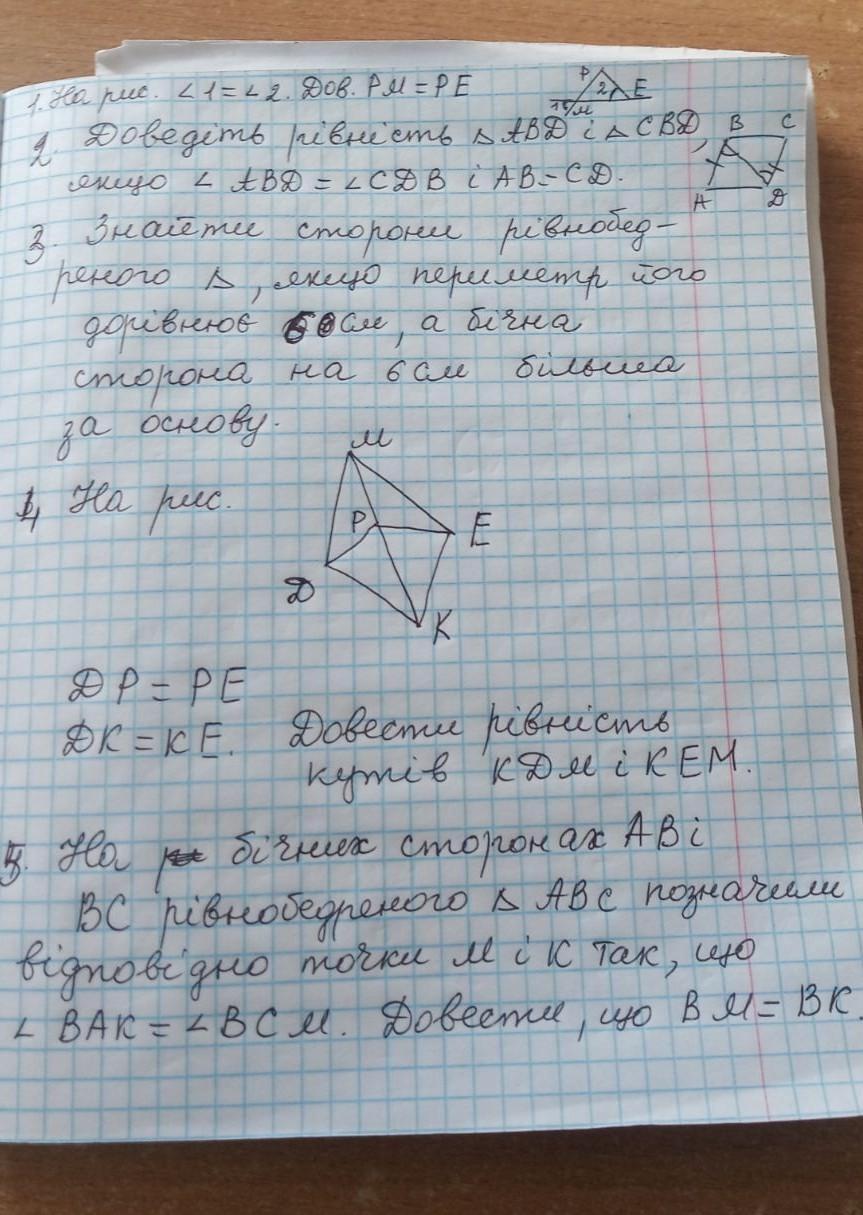 1. На рис. ∠1=∠2. Дов. РМ=РЕ
Р 2 Е
1 М
2. Доведіть рівність △ АВD і △ СВD,
якщо ∠ АВD = ∠СDВ і АВ=СD.
В С
А D
3. Знайти сторони рівнобед-
реного △, якщо периметр його
дорівнює см, а бічна
сторона на 6 см більша
за основу.
4 На рис.
М
Р Е
D
К
DР = РЕ
DК = КЕ. Довести рівність
кутів КDМ і КЕМ.
5. На бічних сторонах АВ і
ВС рівнобедреного △ АВС позначили
відповідно точки М і К так, що
∠ ВАК = ∠ВСМ. Довести, що ВМ = ВК.